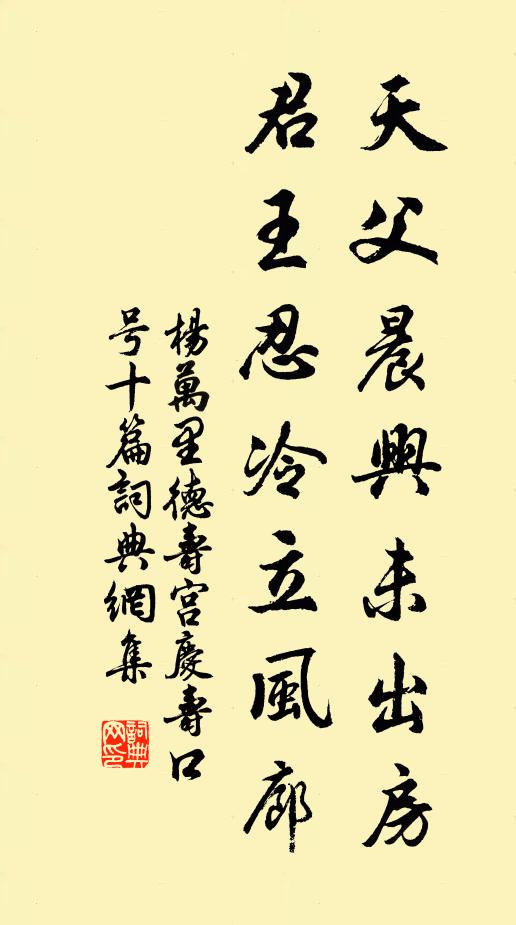 天父晨興未出房
君王忍冷立風廊
楊萬里德壽宮慶壽口
号十篇詞典網集
詞典網印